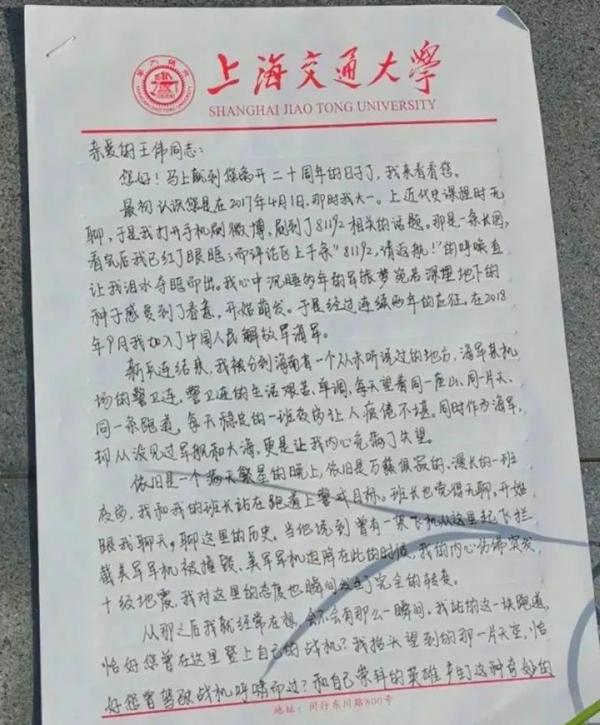 上海交通大学
SHANGHAI JIAO TONG UNIVERSITY
亲爱的王伟同志：
您好！马上就到您离开二十周年的日子了，我来看看您。
最初认识您是在2017年4月1日，那时我大一。上近代史课程时无
聊，于是我打开手机刷微博，刷到了81192相关的话题。那是一条长图，
看完后我已红了眼眶；而评论区上千条“81192，请返航！”的呼唤直
让我泪水夺眶而出。我心中沉睡多年的军旅梦宛若深埋地下的
种子感受到了春意，开始萌发。于是经过连续两年的应征，在2018
年9月我加入了中国人民解放军海军。
新兵连结束，我被分到海南省一个从未听说过的地方，海军某机
场的警卫连。警卫连的生活艰苦、单调，每天望着同一座山、同一片天、
同一条跑道，每天稳定的一班夜岗让人疲倦不堪。同时作为海军，
却从没见过军舰和大海，更是让我内心充满了失望。
依旧是一个满天繁星的晚上，依旧是万籁俱寂的、漫长的一班
夜岗，我和我的班长站在跑道上警戒目标。班长也觉得无聊，开始
跟我聊天，聊这里的历史。当他说到曾有一架飞机从这里起飞拦
截美军军机被撞毁，美军军机迫降在此的时候，我的内心仿佛突发
十级地震，我对这里的态度也瞬间发生了完全的转变。
从那之后我就经常在想，会不会有那么一瞬间，我站的这一块跑道，
恰好您曾在这里登上自己的战机？我抬头望到的那一片天空，恰
好您曾驾驶战机呼啸而过？和自己崇拜的英雄产生了这种奇妙的
地址：闵行东川路800号